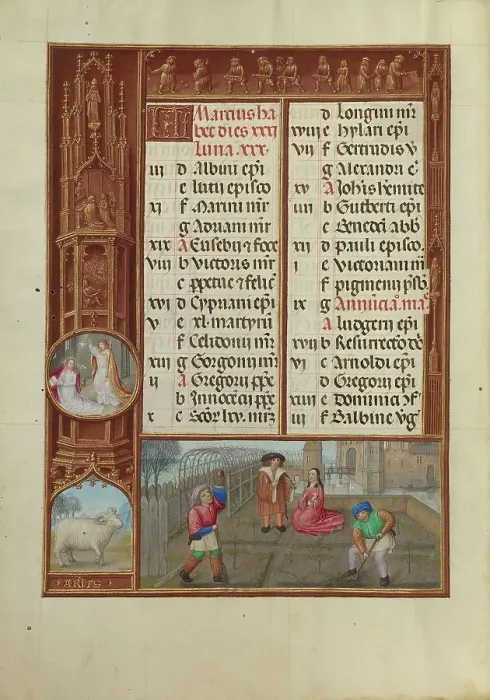 Marcius ha
bet dies xxxj
Luna .xxx.
iii d Albini ep̄i
e lucii episco
xi f Marini mr̄
g Adriani mr̄
xix A Eusebii &
viii b victoris mr̄
c ppetue & felic̄
xvi d Cypriani ep̄i
v e xl. martyrū
f Celidonii mr̄
xiii g Gorgonii mr̄
ii A Gregorii pp̄e
b Innocecii pp̄e
x c
d Longini mr̄
xviii e hylari ep̄i
vii f Gertrudis v̄
g Alexandri
xv A Joh̄is h̄emite
iiii b Gutberti ep̄i
c Benedc̄i abb̄
xii d pauli episco.
i e victoriani mr̄
f pigmenii
ix g Annūcia. ma
A ludgerii ep̄i
xvii b Resurrectō
vi c Arnoldi ep̄i
d Gregorii ep̄i
xiiii e dominici
iii f Balbine v̄g
ARIES